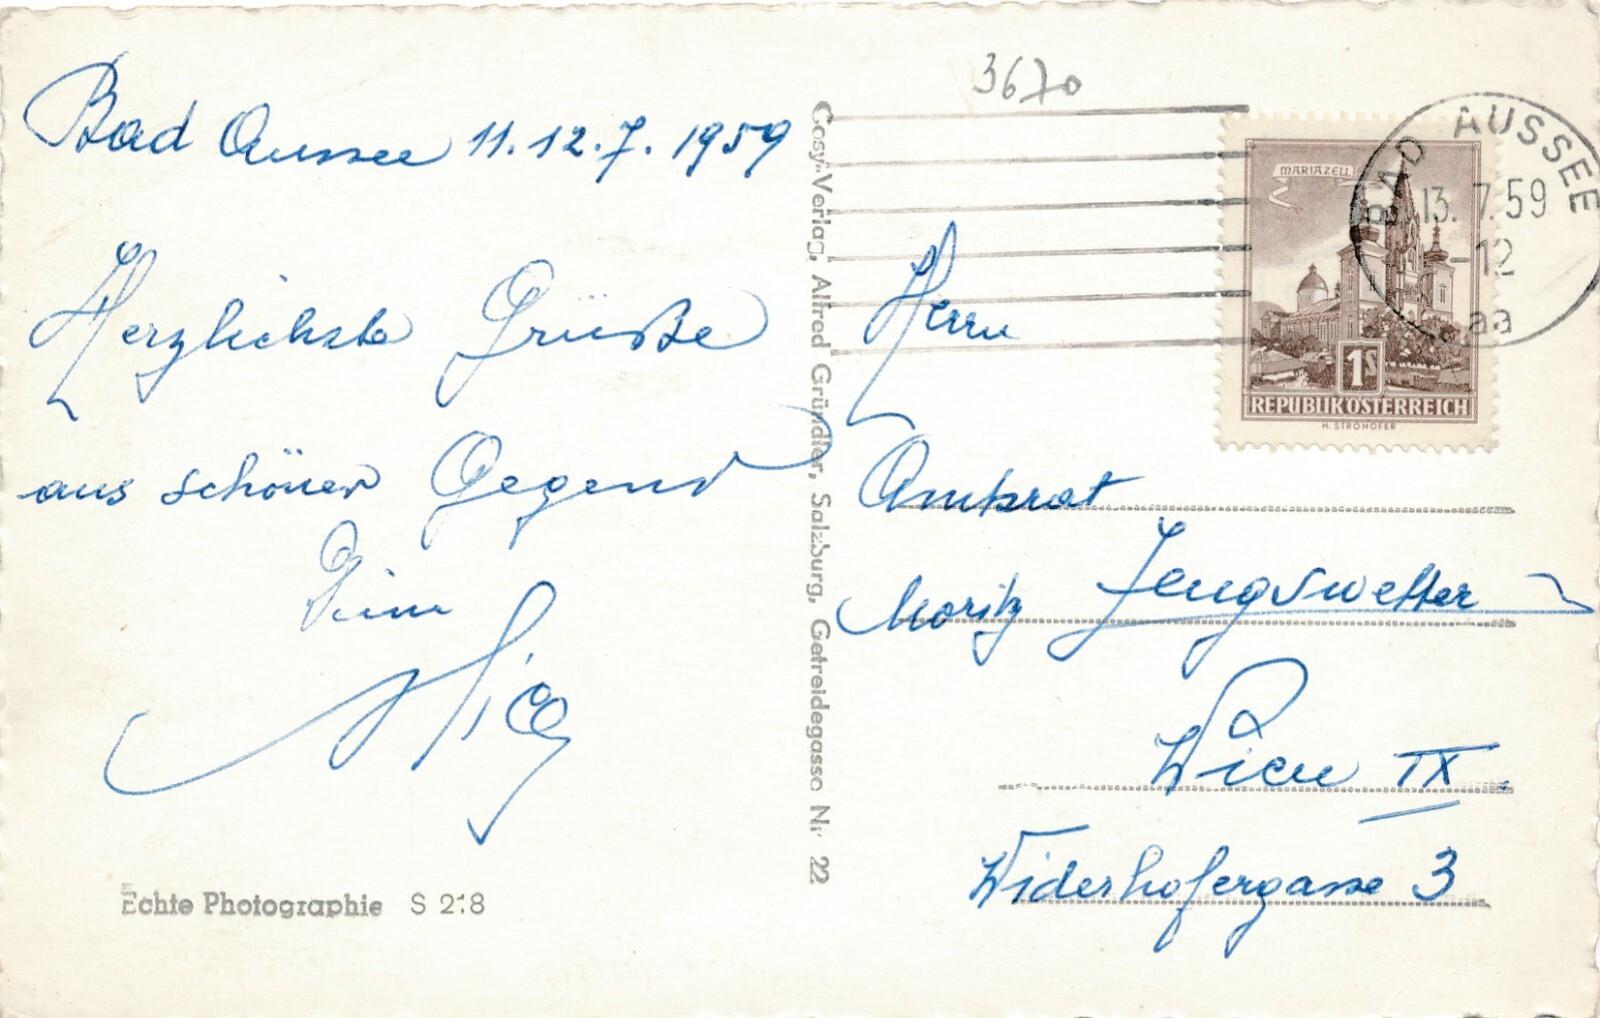 Bad Aussee 11.12.7.1959
Herzlichste Grüße
aus schöner Gegend
Dein
Echte Photographie S 218
Cosy-Verlag, Alfred Gründler, Salzburg, Getreidegasse Nr 22
3670
MARIAZELL
1S
REPUBLIK ÖSTERREICH
H. STROHOFER
BAD AUSSEE
13.7.59
-12
aa
Herrn
Amtsrat
Moritz
Wien IX.
Widerhofergasse 3